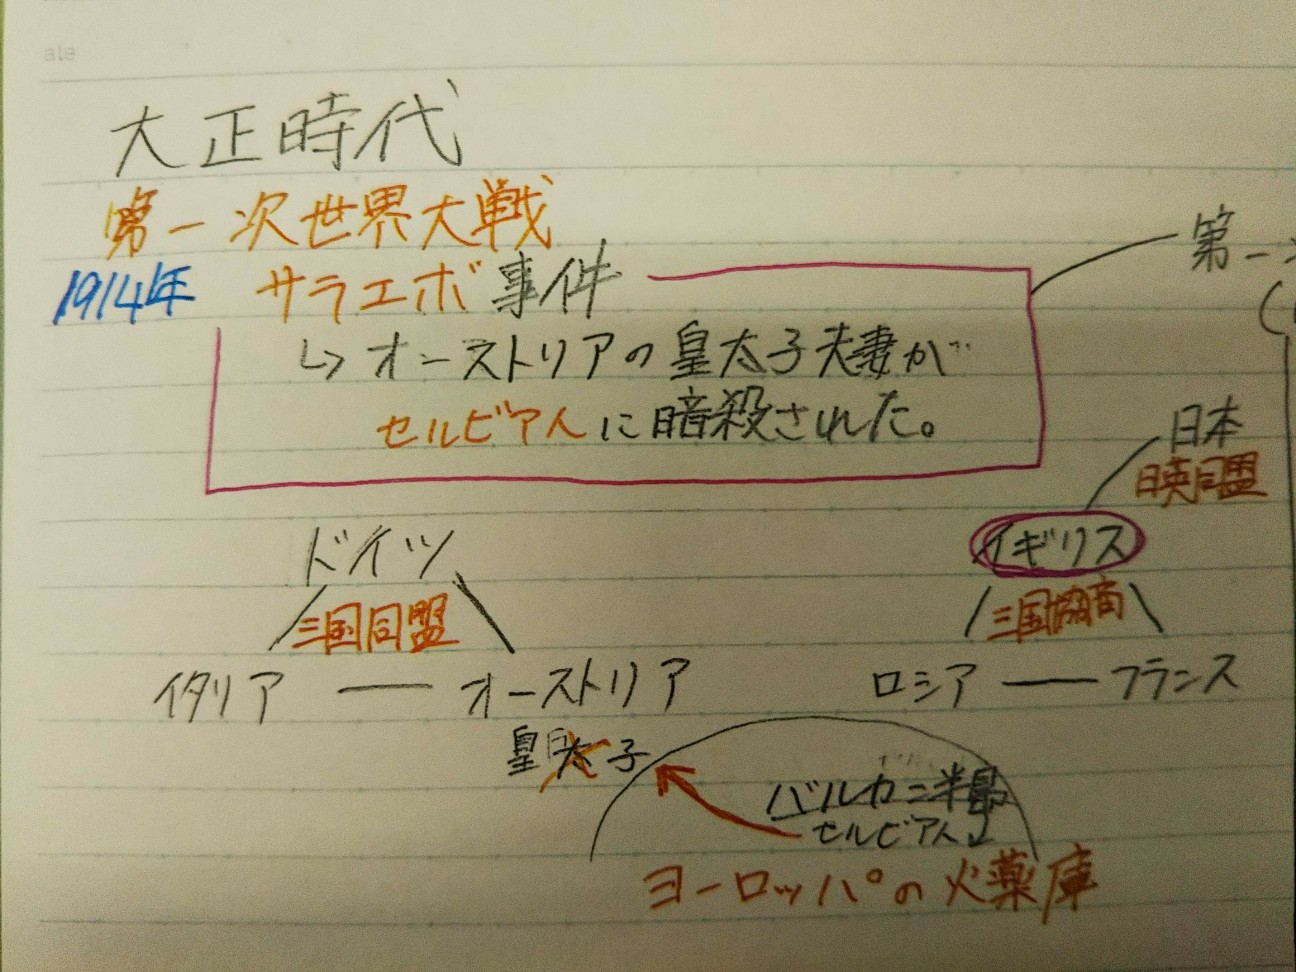 大正時代
第一次世界大戦
1914年 サラエボ事件
第一
↳オーストリアの皇太子夫妻が
セルビア人に暗殺された。
日本
日英同盟
ドイツ
イギリス
三国同盟
三国協商
イタリア ― オーストリア
ロシア ― フランス
皇太子
バルカン半島
セルビア人
ヨーロッパの火薬庫